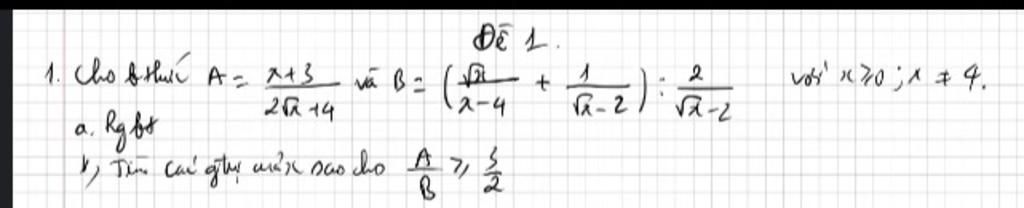 Đề 1.
1. Cho bthức A = (x+3)/(2√x+4) và B = (√x/(x-4) + 1/(√x-2)) : 2/(√x-2) với x≥0; x ≠ 4.
a. Rg bt
b, Tìm các gtrị của x sao cho A/B ≥ 5/2